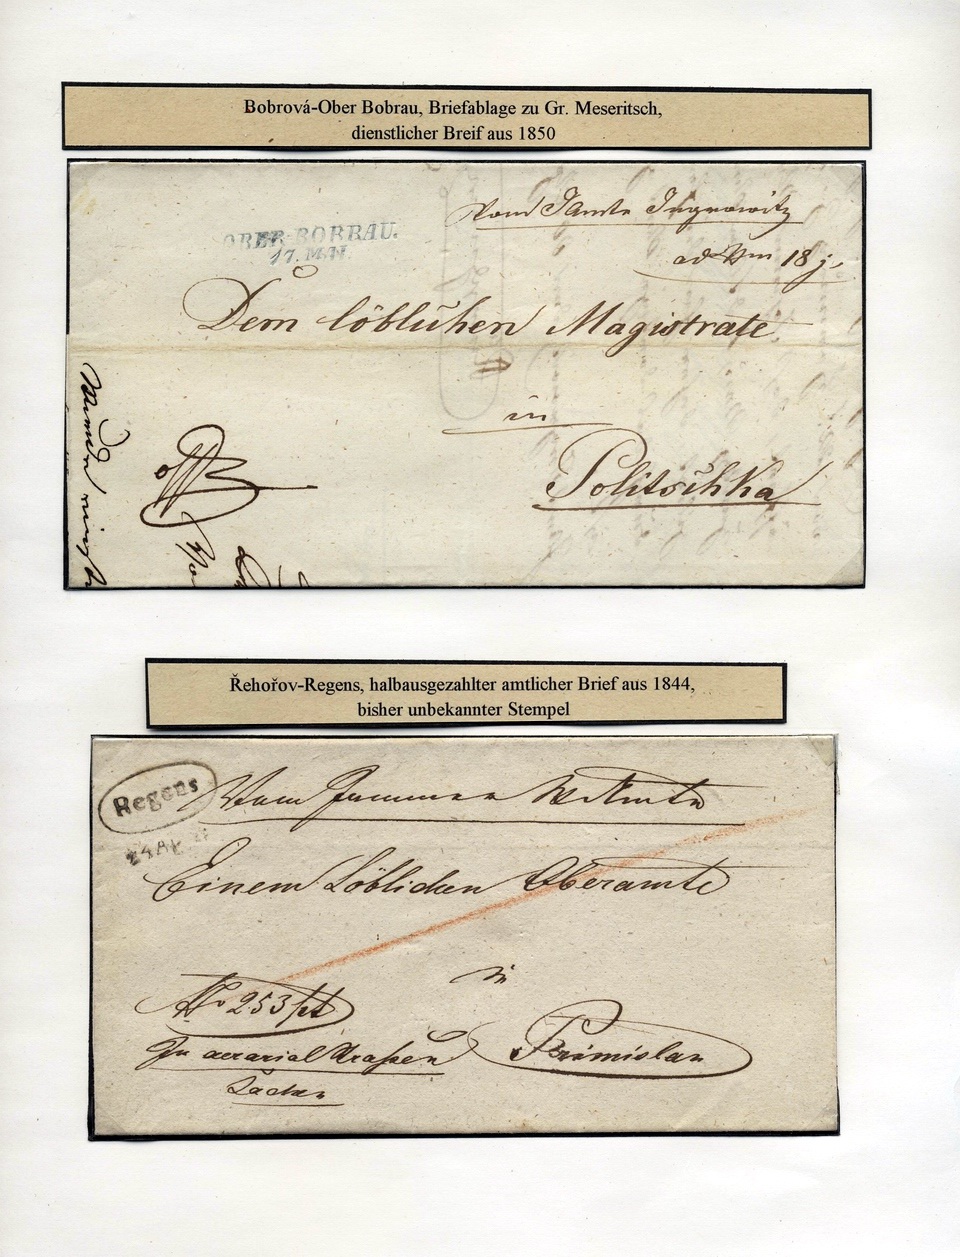 Bobrová-Ober Bobrau, Briefablage zu Gr. Meseritsch,
dienstlicher Breif aus 1850
Vom Amte Ingrowitz
18
OBER-BOBRAU.
17. MAI.
Dem löblichen Magistrate
in
Politschka
Řehořov-Regens, halbausgezahlter amtlicher Brief aus 1844,
bisher unbekannter Stempel
Regens
Vom
Einem Löblichen Oberamte
in
No 253
In aerarial Straßen
Sachen
Primislau